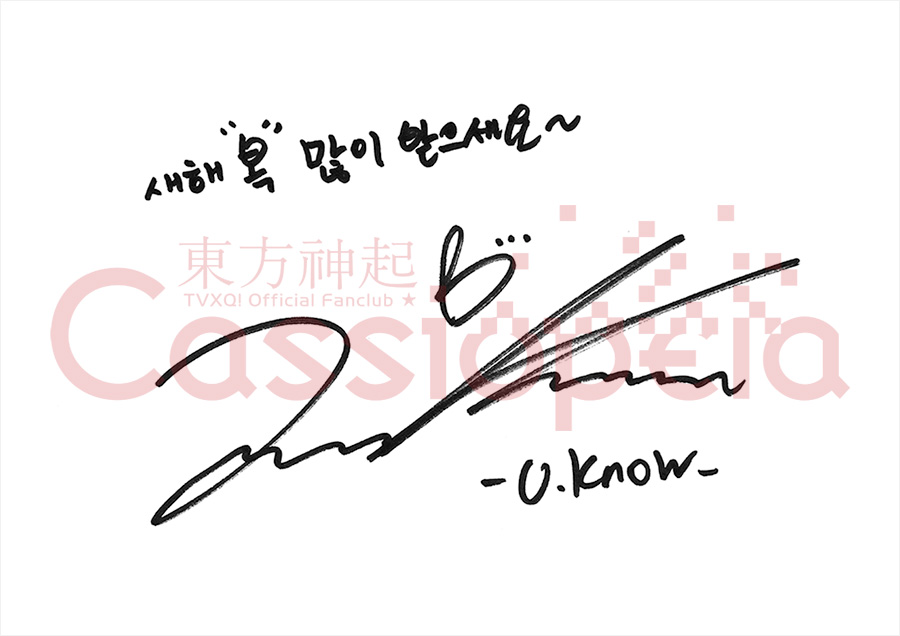 새해 "복" 많이 받으세요~
東方神起
TVXQ! Official Fanclub ★
Cassiopeia
-U.Know-